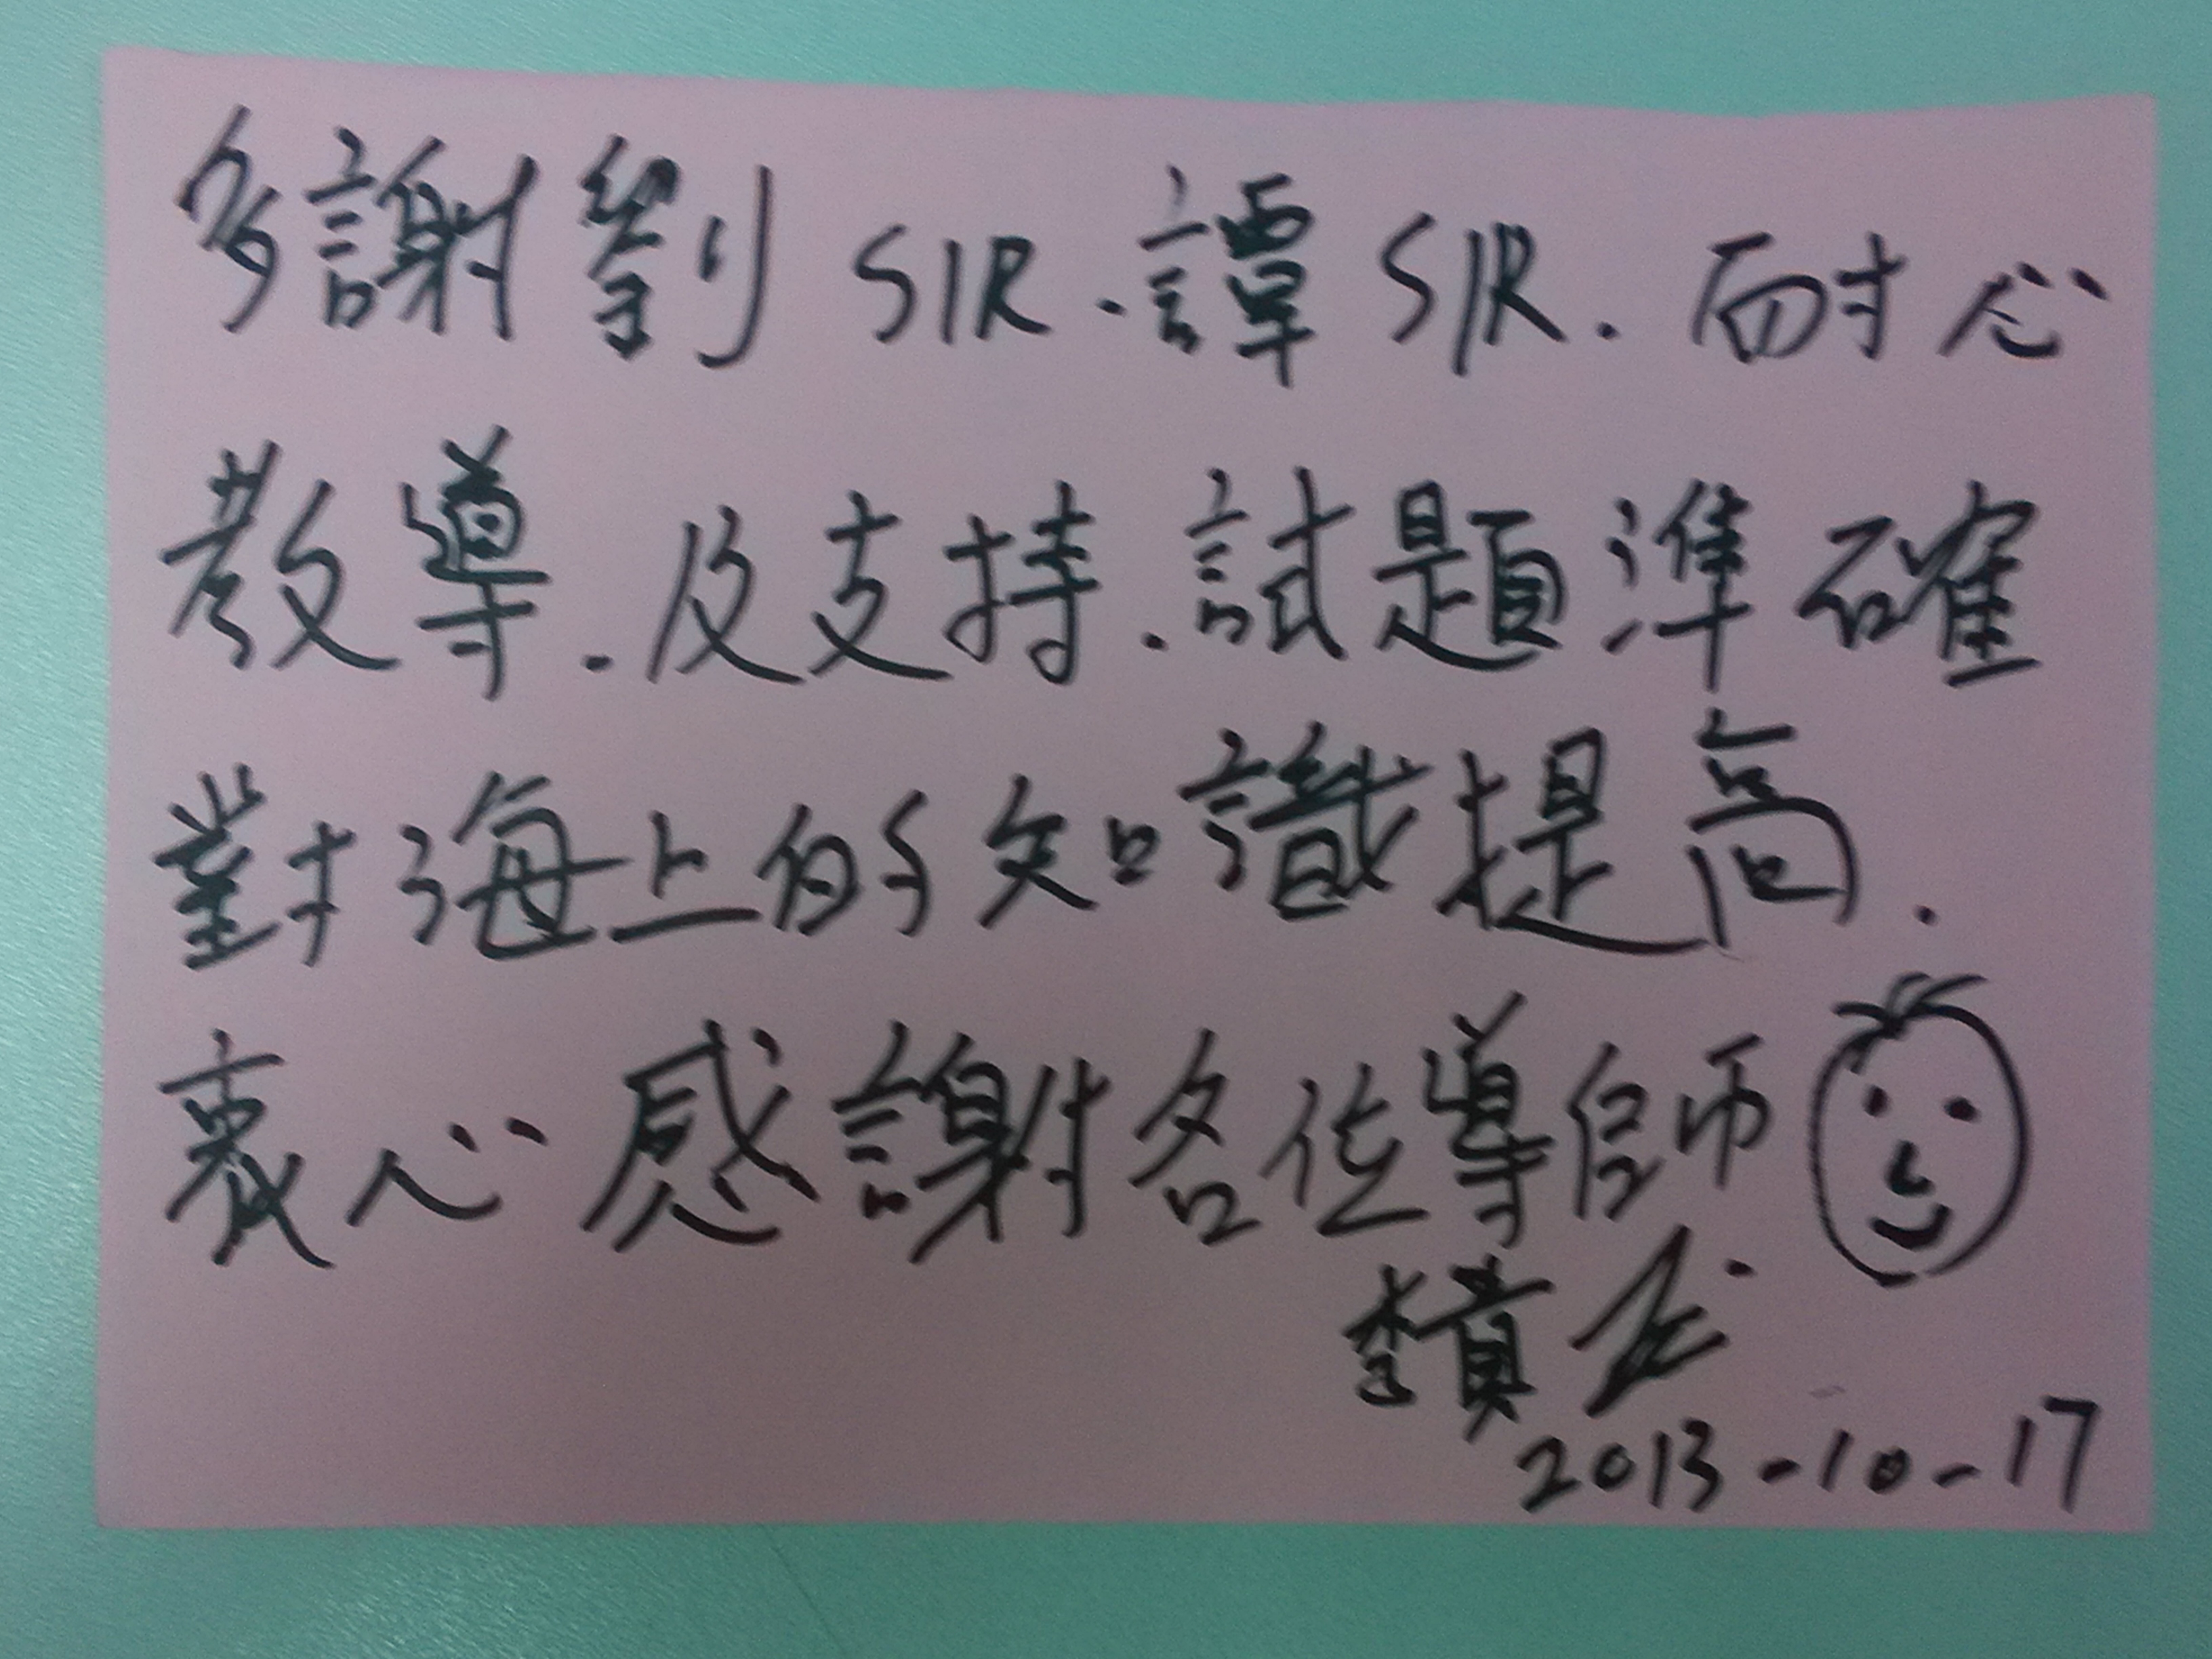 多謝劉SIR.譚SIR.耐心
教導.及支持.試題準確
對海上的知識提高.
衷心感謝各位導師
李貴
2013-10-17